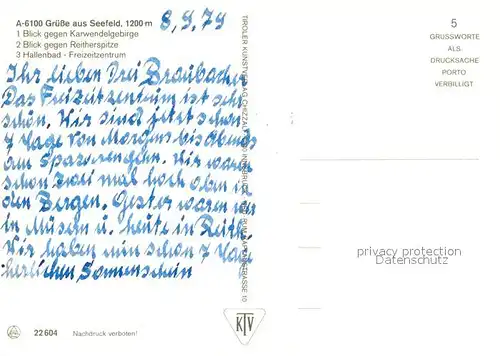 A-6100 Grüße aus Seefeld, 1200 m
1 Blick gegen Karwendelgebirge
2 Blick gegen Reitherspitze
3 Hallenbad - Freizeitzentrum
8.9.79
Ihr lieben Drei Braubacher
Das Freizeitzentrum ist sehr
schön. Wir sind jetzt schon
7 Tage von Morgens bis Abends
am Spazierengehn. Wir waren
schon zwei mal hoch oben in
den Bergen. Gester waren wir
in u. heute in Reith.
Wir haben nun schon 7 Tage
herlichen Sonnenschein
22 604 Nachdruck verboten!
TIROLER KUNSTVERLAG CHIZZALI INNSBRUCK
KTV
5
GRUSSWORTE
ALS
DRUCKSACHE
PORTO
VERBILLIGT
privacy protection
Datenschutz